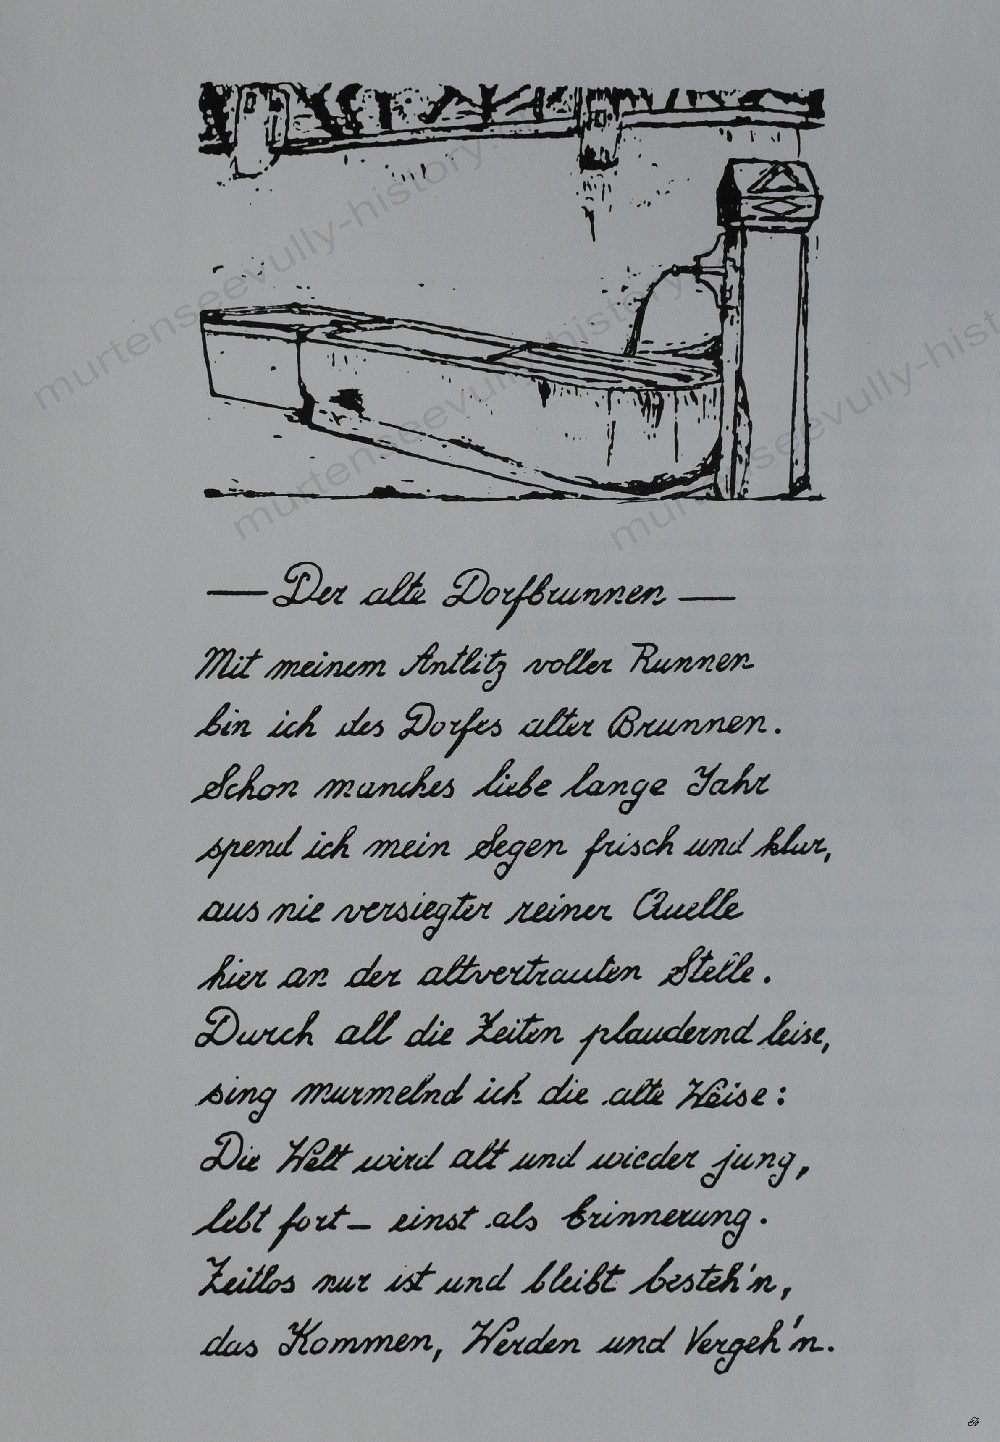 murtenseevully-history.
murtenseevully-history
murtenseevully-hist
— Der alte Dorfbrunnen —
Mit meinem Antlitz voller Runnen
bin ich des Dorfes alter Brunnen.
Schon manches liebe lange Jahr
spend ich mein Segen frisch und klar,
aus nie versiegter reiner Quelle
hier an der altvertrauten Stelle.
Durch all die Zeiten plaudernd leise,
sing murmelnd ich die alte Weise:
Die Welt wird alt und wieder jung,
lebt fort – einst als Erinnerung.
Zeitlos nur ist und bleibt besteh'n,
das Kommen, Werden und Vergeh'n.